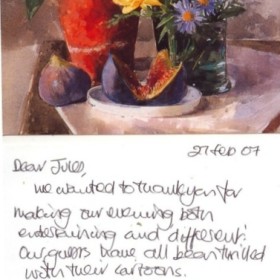 27 Feb 07
Dear Jules,
We wanted to thank you for
making our evening both
entertaining and different!
Our guests have all been thrilled
with their cartoons.